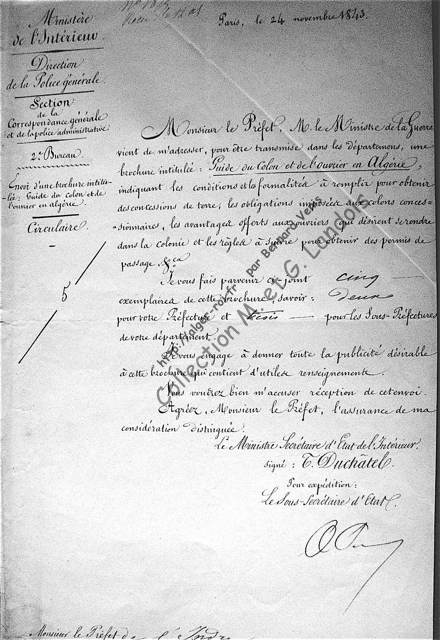 Ministère
de l'Intérieur.
Direction
de la Police générale.
Section
de la
Correspondance générale
et de la police administrative
2e Bureau.
Envoi d'une brochure intitu-
lée: Guide du colon et de
l'ouvrier en algérie.
Circulaire
5
Paris, le 24 novembre 1843.
Monsieur le Préfet, M. le Ministre de la Guerre
vient de m'adresser, pour être transmise dans les départemens, une
brochure intitulée: Guide du Colon et de l'ouvrier en Algérie,
indiquant les conditions et les formalités à remplir pour obtenir
des concessions de terre, les obligations imposées aux colons conces-
sionnaires, les avantages offerts aux ouvriers qui désirent se rendre
dans la colonie et les règles à suivre pour obtenir des permis de
passage &ca
Je vous fais parvenir ci-joint cinq
exemplaires de cette brochure, savoir: deux
pour votre Préfecture et trois pour les Sous-Préfectures
de votre département.
Je vous engage à donner toute la publicité désirable
à cette brochure qui contient d'utiles renseignements.
Vous voudrez bien m'accuser réception de cet envoi.
Agréez, Monsieur le Préfet, l'assurance de ma
considération distinguée.
Le Ministre Secrétaire d'Etat de l'Intérieur.
signé: T. Duchâtel.
Pour expédition:
Le Sous-Secrétaire d'Etat,
Monsieur le Préfet de l'Indre
http://alger-roi.fr par Bernard Venis
Collection M. et G. Landon